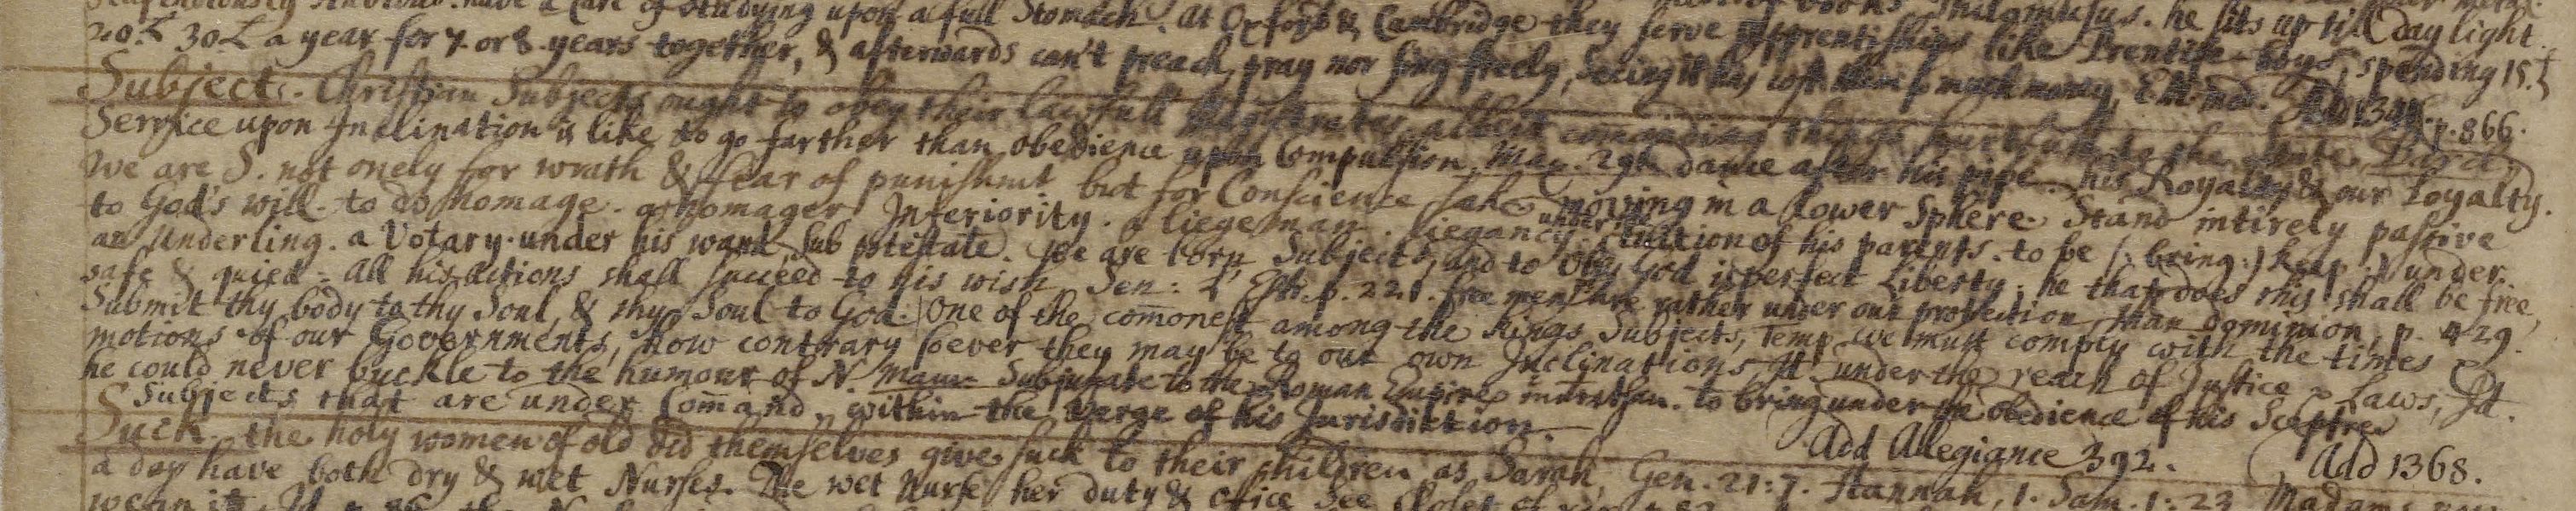 Stupendiously studious. have a Care of studying upon a full Stomach. At Oxford & Cambridge they serve apprentiships like Prentise-boys, spending 15.£
20.£ 30£ a year for 7 or 8 years together, & afterwards can't preach, pray nor sing freely, seeing it has cost them so much money, p. 866.
Subject. Christian Subjects ought to obey their lawfull Magistrates, albeit comanding things hurtfull to the State, Bard.
Service upon Inclination is like to go farther than obedience upon Compulsion, May. 29th dance after his pipe. his Royalty & our Loyalty.
We are S. not onely for wrath & fear of punishmt but for Conscience sake moving in a lower Sphere. Stand intirely passive
to God's will. to do homage. a homager Inferiority. a liege man. liegancy. under tuition of his parents. to be (: being:) keep :) under.
an Underling. a Votary. under his wand, sub potestate. We are born Subjects, and to obey God is perfect Liberty. he that does this shall be free,
safe & quiet. All his actions shall succeed to his wish Sen: L' Est. p. 221. free men are rather under our protection than dominion, p. 429.
Submit thy body to thy Soul, & thy Soul to God. One of the comonest among the Kings Subjects, Temp we must comply with the times &
motions of our Governments, how contrary soever they may be to our own Inclinations, It. under the reach of Justice & Laws, It.
he could never buckle to the humour of N. Subjugate to the Roman Empire to bring under the obedience of his Sceptre
Subjects that are under Comand, within the Verge of his Jurisdiktion. Add Allegiance 392. Add 1368.
Suck. the holy women of old did themselves give suck to their children, as Sarah, Gen. 21:7. Hannah, 1. Sam. 1:23 Madams now
a day have both dry & wet Nurses. The wet Nurse her duty & office See